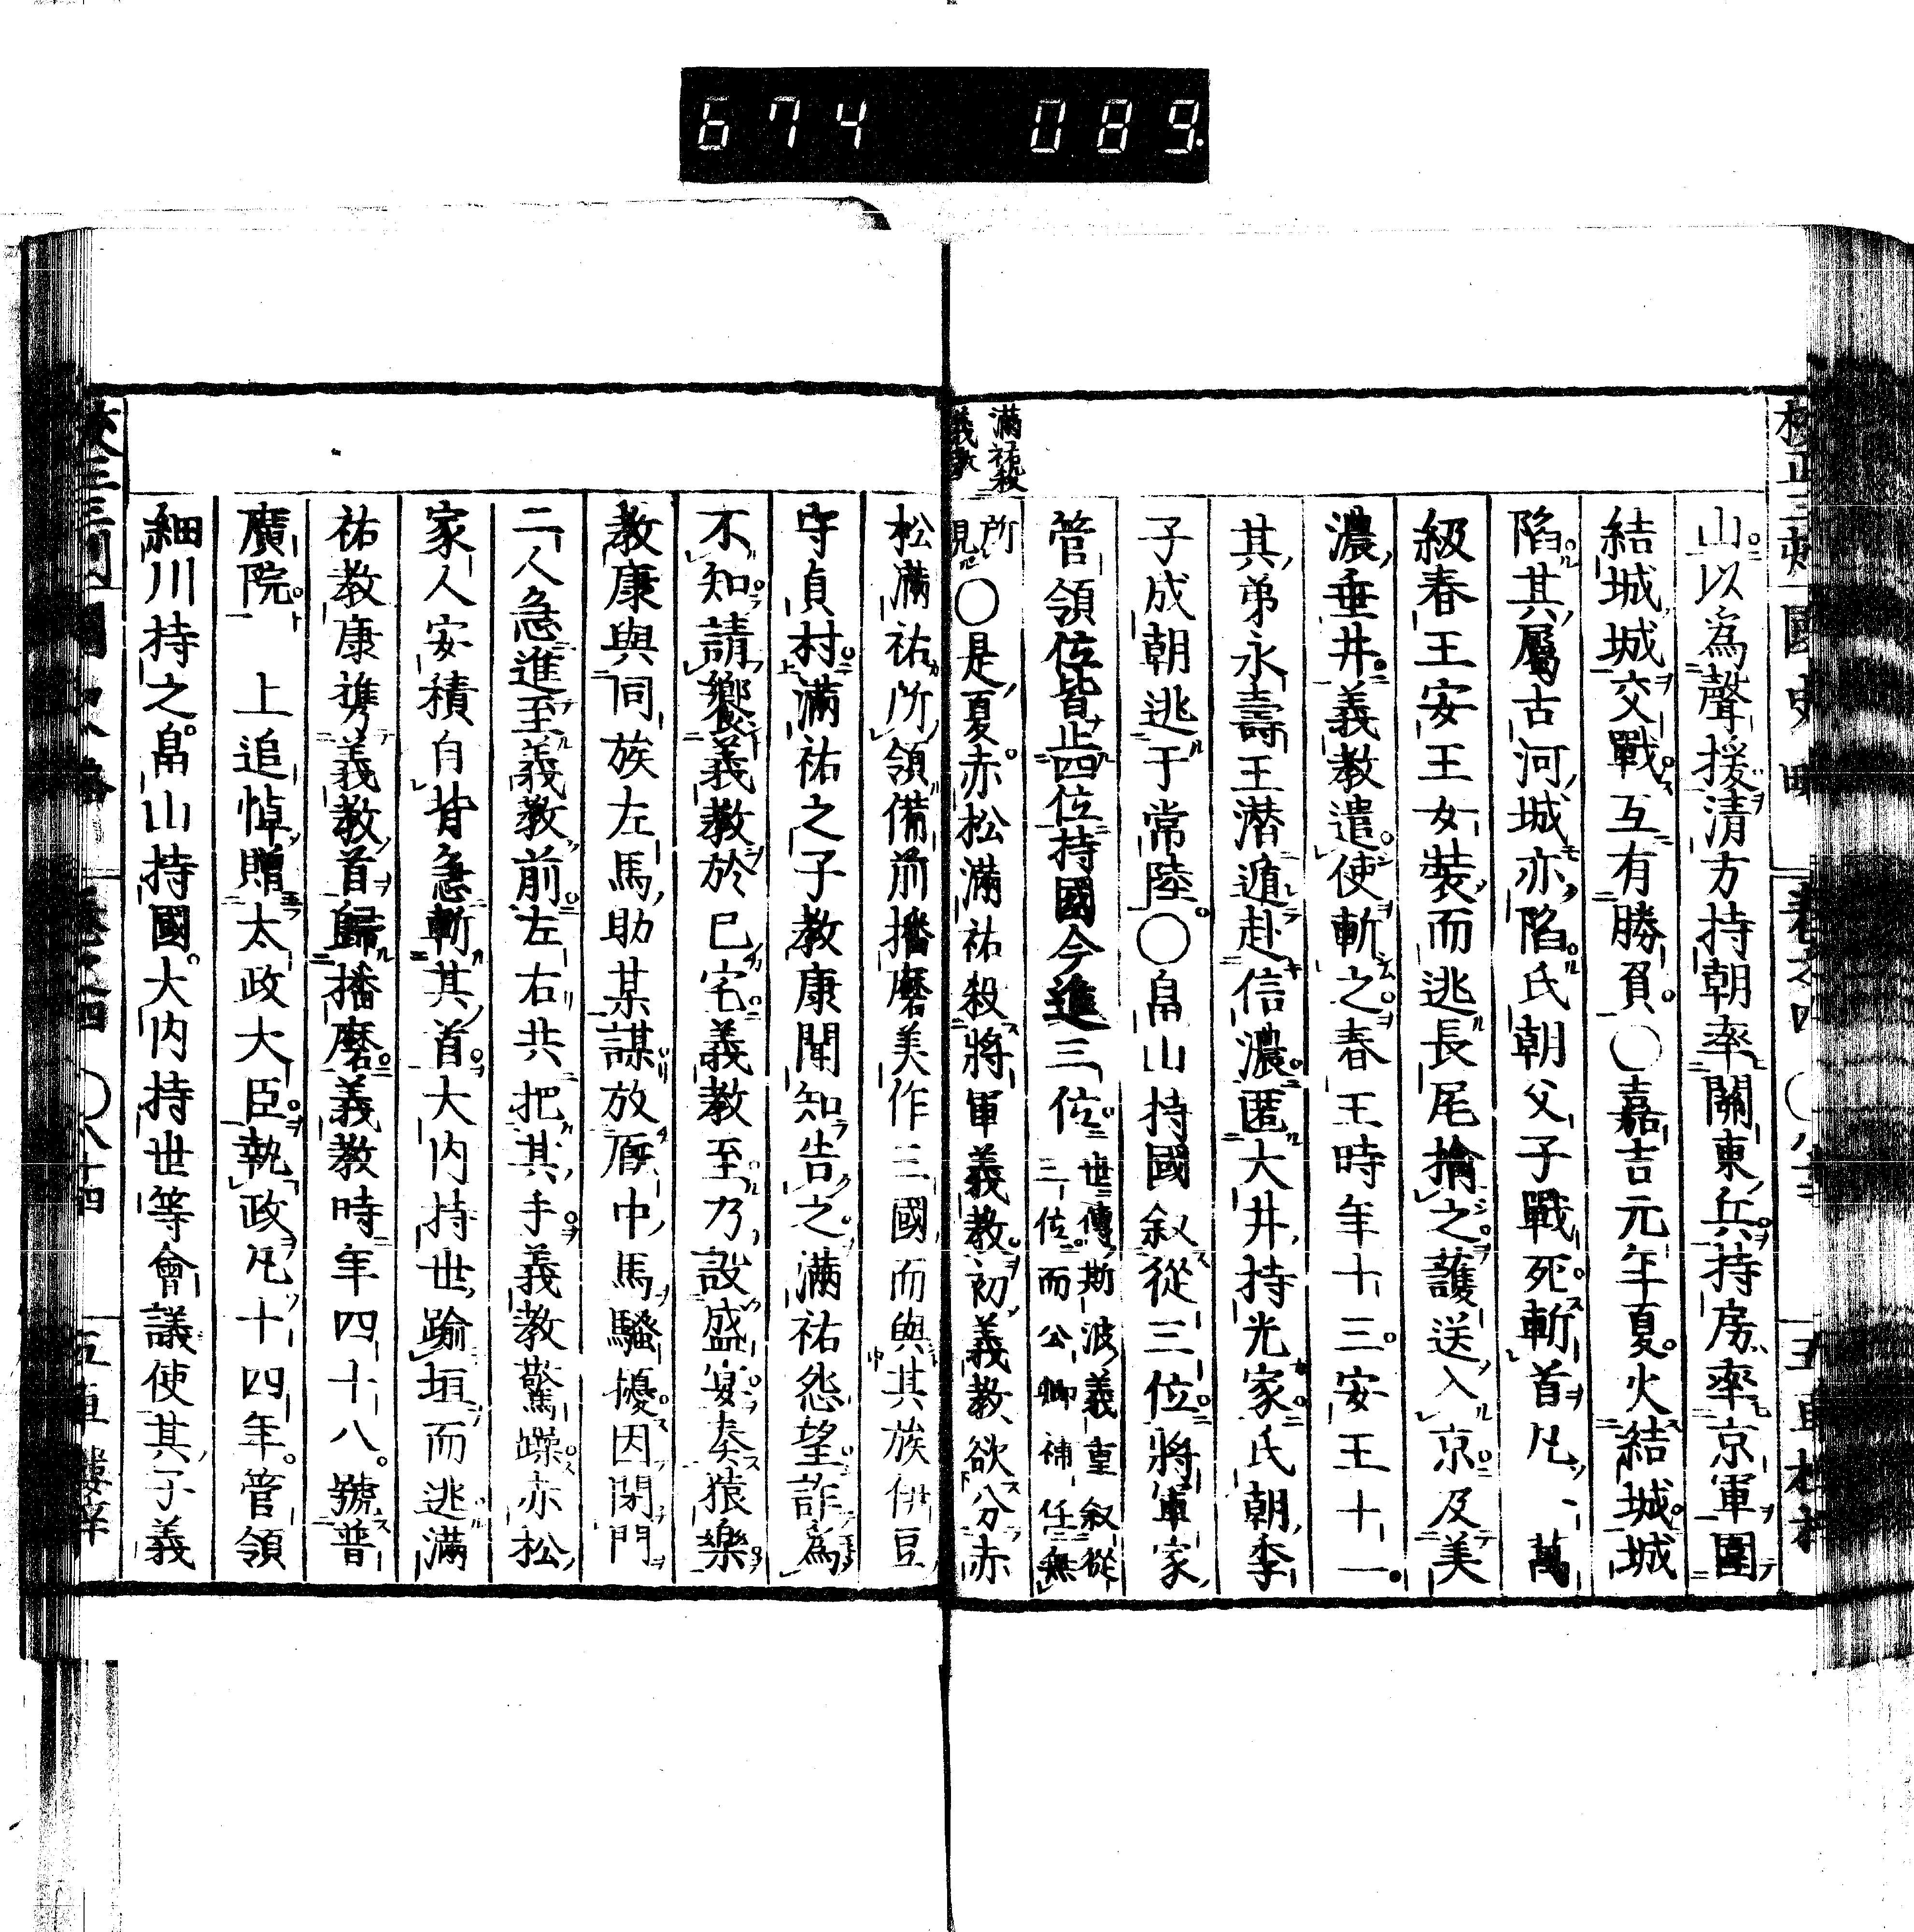 674 089
山以爲聲援清方持朝率關東兵持房率京軍圍
結城城交戰互有勝負○嘉吉元年夏火結城城
陷其屬古河城亦陷氏朝父子戰死斬首凡一萬
級春王安王女裝而逃長尾擒之護送入京及美
濃垂井義教遣使斬之春王時年十三安王十一
其弟永壽王潜遁赴信濃匿大井持光家氏朝季
子成朝逃于常陸○畠山持國叙從三位將軍家
管領位皆止四位持國今進三位世傳斯波義重叙從三位而公卿補任無
所見○是夏赤松滿祐殺將軍義教初義教欲分赤
滿祐殺義教
松滿祐所領備前播磨美作三國而與其族伊豆
守貞村滿祐之子教康聞知告之滿祐怨望詐爲
不知請饗義教於巳宅義教至乃設盛宴奏猿樂
教康與同族左馬助某謀放厩中馬騷擾因閉門
二人急進至義教前左右共把其手義教驚躁赤松
家人安積自背急斬其首大内持世踰垣而逃滿
祐教康携義教首歸播磨義教時年四十八號普
廣院 上追悼贈太政大臣執政凡十四年管領
細川持之畠山持國大内持世等會議使其子義